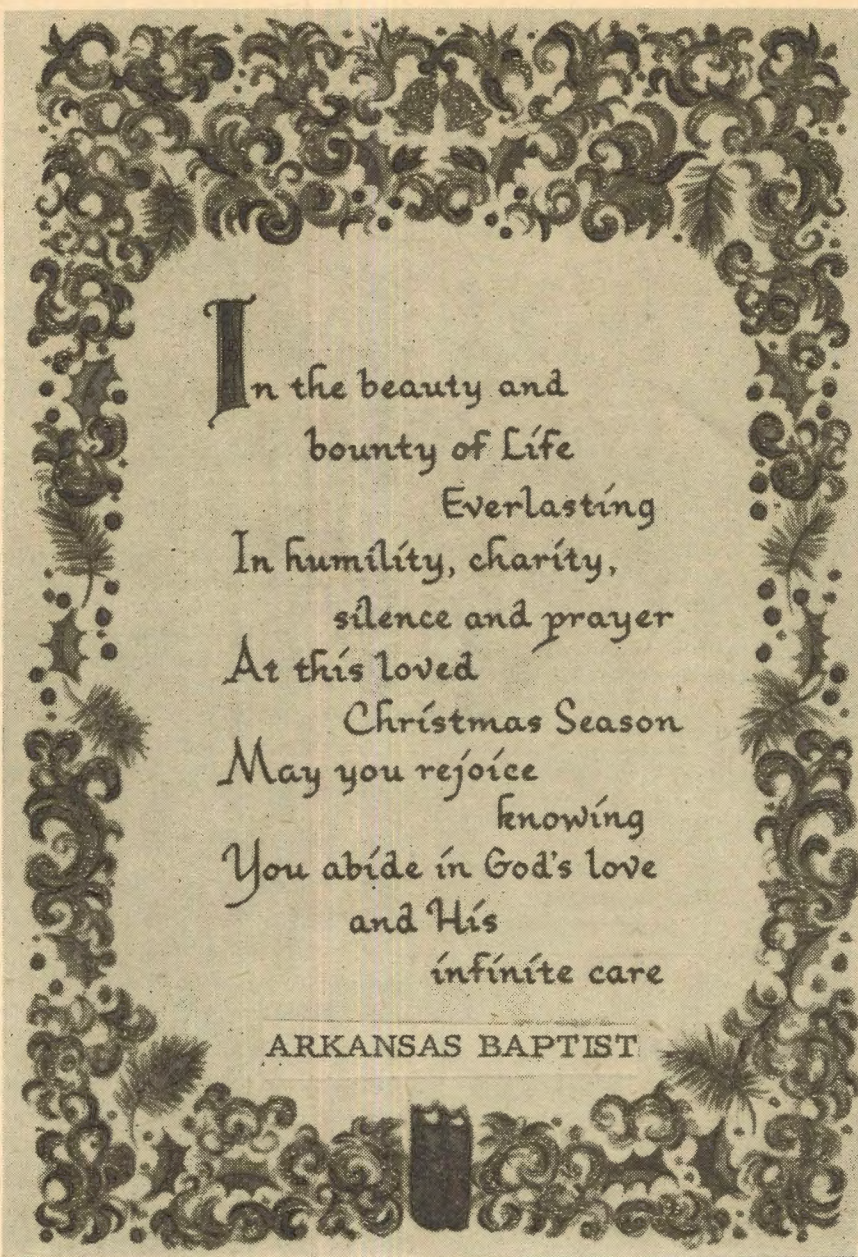 In the beauty and
bounty of Life
Everlasting
In humility, charity,
silence and prayer
At this loved
Christmas Season
May you rejoice
knowing
You abide in God's love
and His
infinite care
ARKANSAS BAPTIST